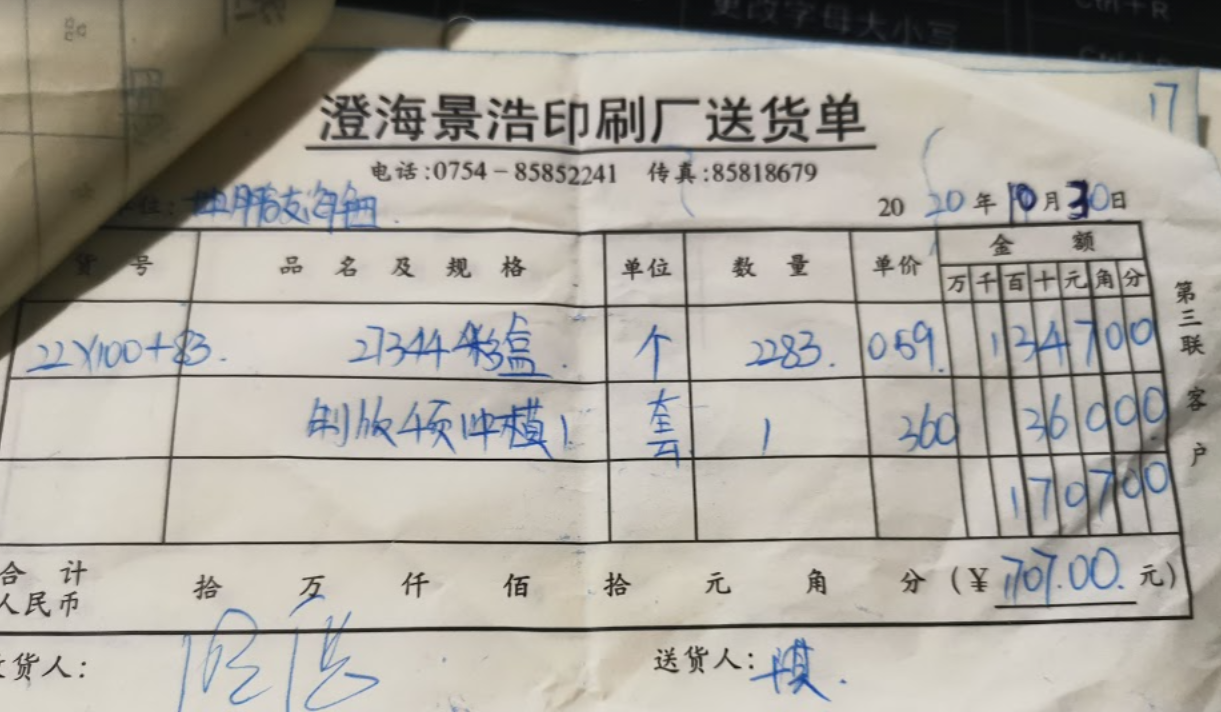 更改字母大小写
Ctrl+R
17
澄海景浩印刷厂送货单
电话:0754-85852241 传真:85818679
位:
2020年10月30日
货号 品名及规格 单位 数量 单价 金额
万 千 百 十 元 角 分
22×100+83. 27344彩盒. 个 2283. 0.59. 134700
制版4页冲模1 套 1 360 36000
170700
合计 人民币 拾 万 仟 佰 拾 元 角 分 (¥1707.00.元)
货人: 送货人:
第三联 客户